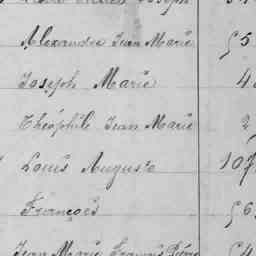 Joseph
Alexandre Jean Marie 5
Joseph Marie 4
Théophile Jean Marie 2
Louis Auguste 107
François 6
Jean Marie François Pierre 4